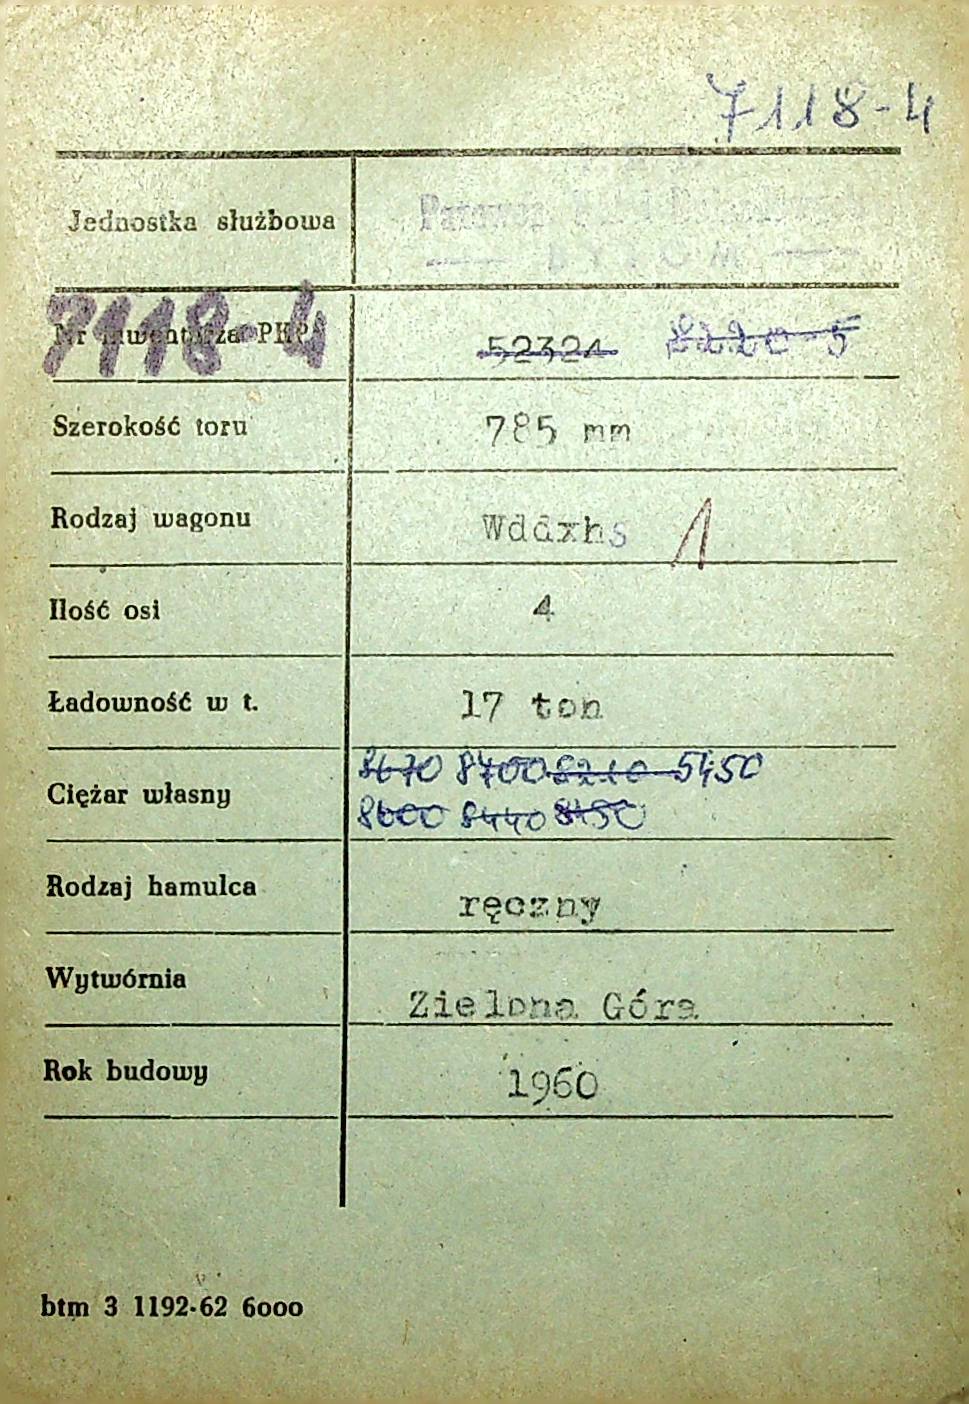 7118-4
Jednostka służbowa
BYTOM
7118-4
Nr inwentarza PKP 52321
Szerokość toru 785 mm
Rodzaj wagonu Wddxhs 1
Ilość osi 4
Ładowność w t. 17 ton
8670 8700 8210 5450
Ciężar własny
8600 8440 8450
Rodzaj hamulca ręczny
Wytwórnia Zielona Góra
Rok budowy 1960
btm 3 1192-62 6000